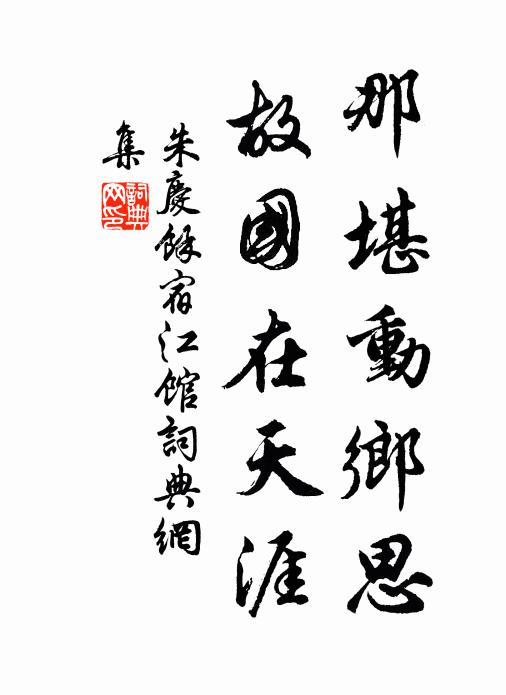 那堪動鄉思
故國在天涯
朱慶餘宿江館詞典網
集
詞典
网印